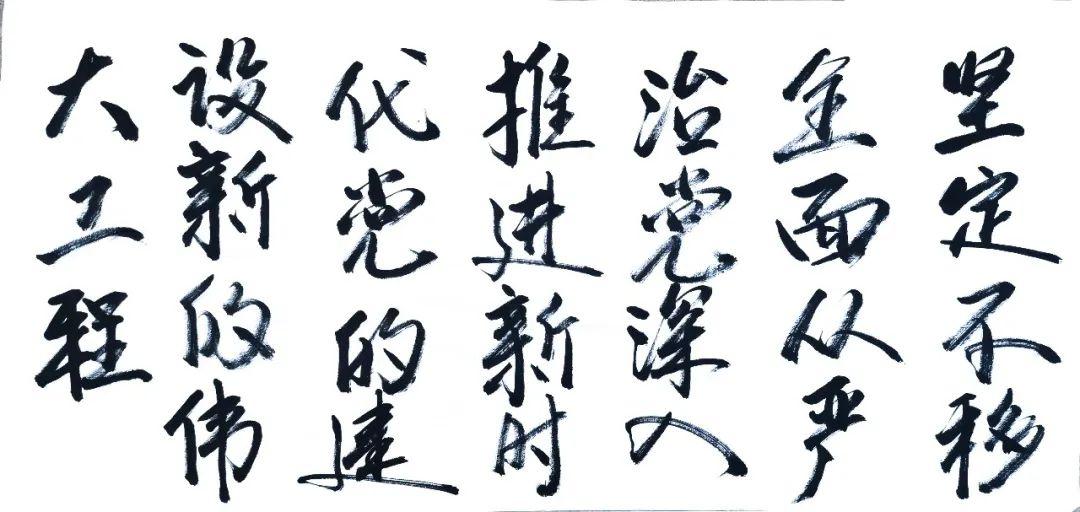 坚定不移
全面从严
治党深入
推进新时
代党的建
设新的伟
大工程